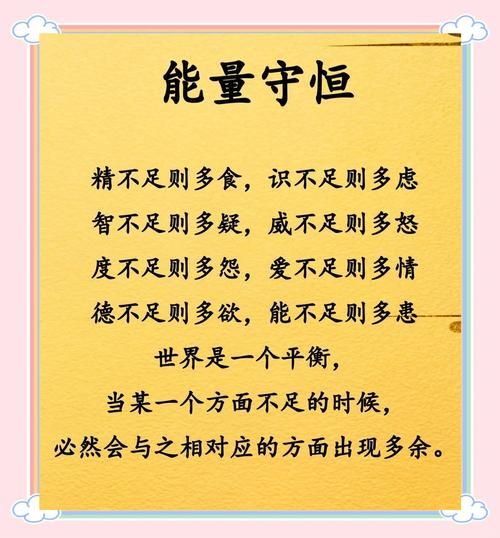 能量守恒
精不足则多食，识不足则多虑
智不足则多疑，威不足则多怒
度不足则多怨，爱不足则多情
德不足则多欲，能不足则多患
世界是一个平衡，
当某一个方面不足的时候，
必然会与之相对应的方面出现多余。